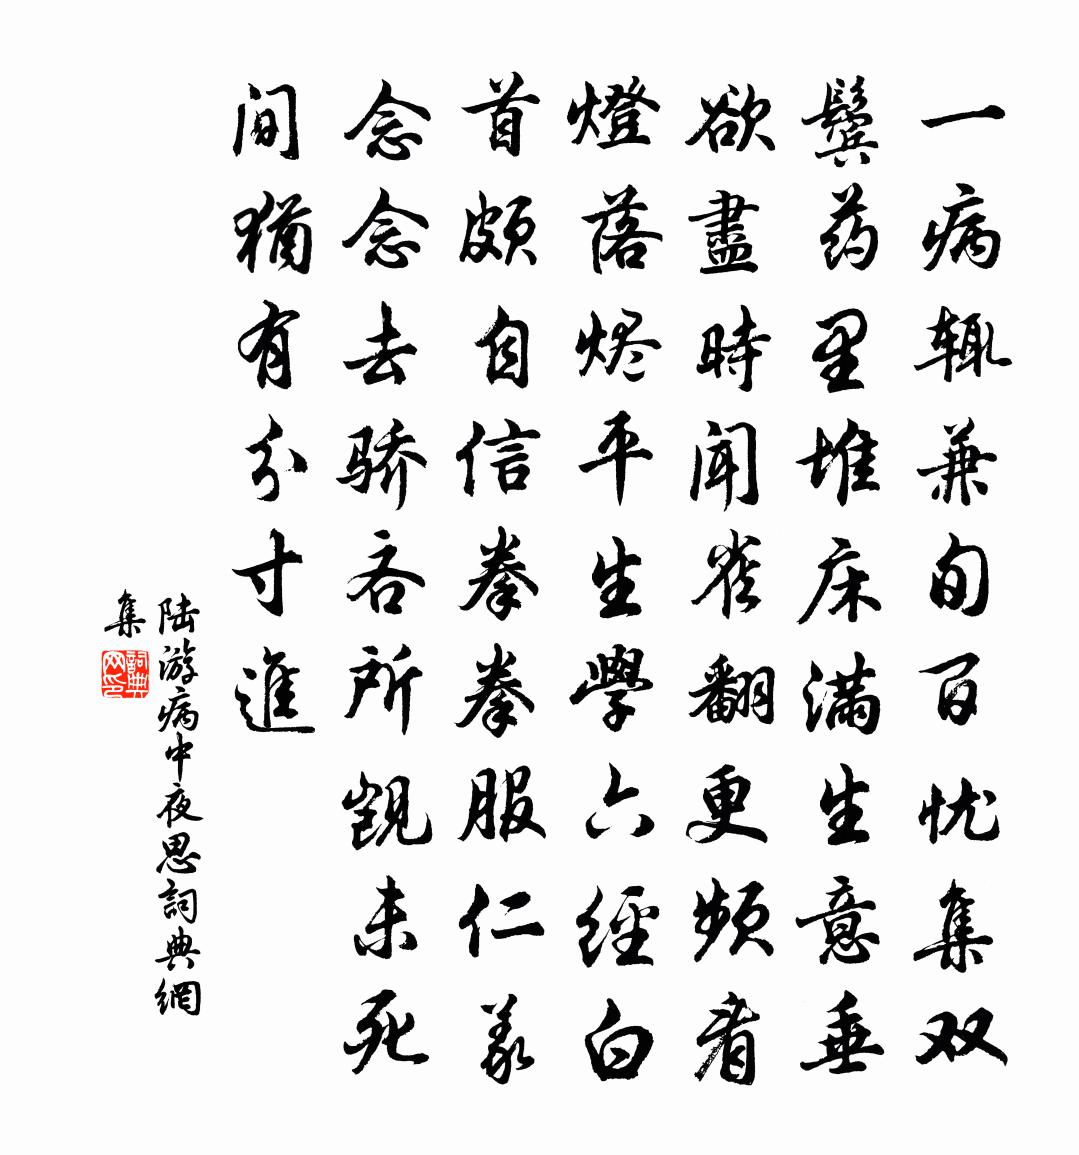 一病辄兼旬百忧集双
鬓药里堆床满生意垂
欲盡時闻雀翻更频看
燈落烬平生學六經白
首颇自信拳拳服仁義
念念去骄吝所觊未死
间猶有分寸進
陆游病中夜思詞典網
集
詞典网印